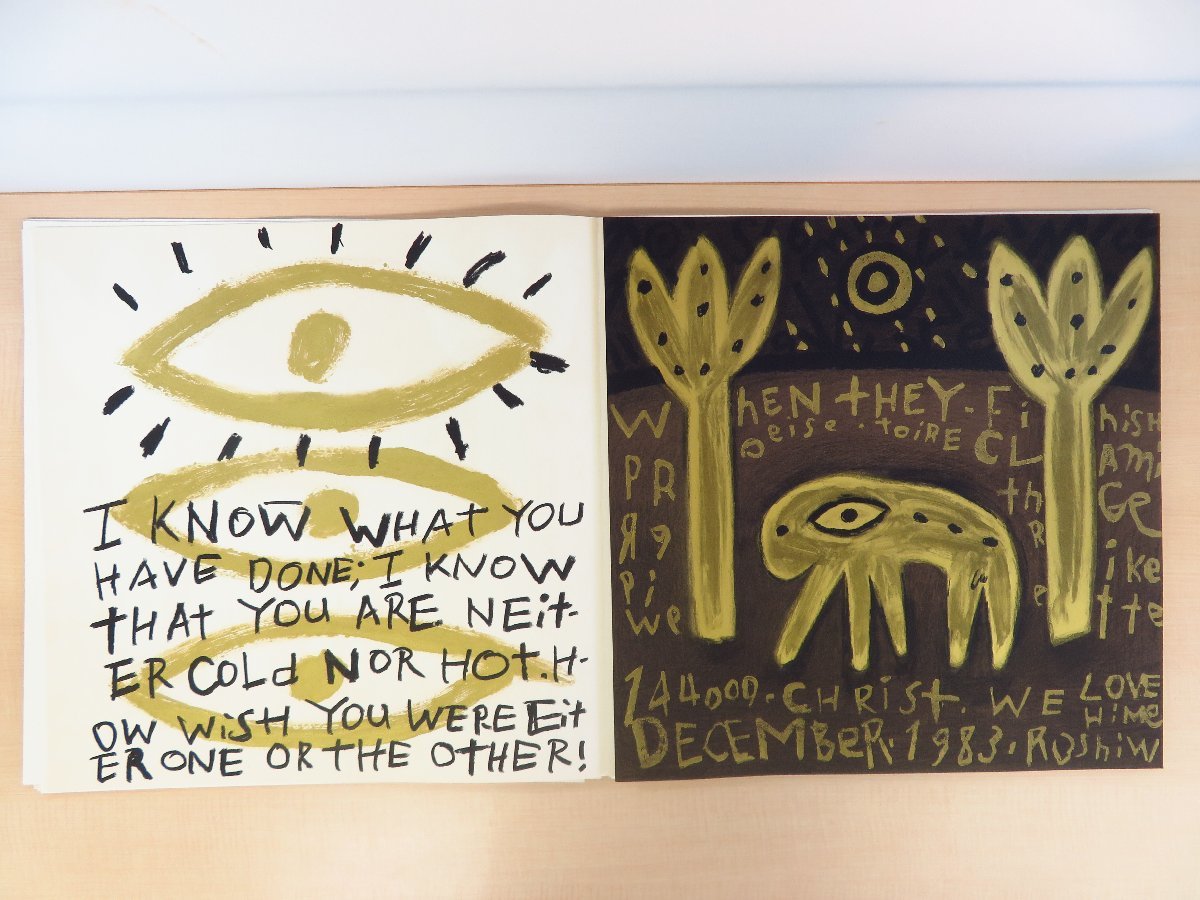 I KNOW WHAT YOU
HAVE DONE; I KNOW
tHAt YOU ARE NEit-
ER COLd NOR HOt.H-
OW WiSH YOU WERE Eit
ER ONE OR THE OtHER!
WHEN tHEY.FiNiSH
PR
CL
AMi
th
Ge
R
Pi
ike
we
e
tte
144000.CHRiSt.WE LOVE
HiMe
DECEMBeR.1983.ROShiW